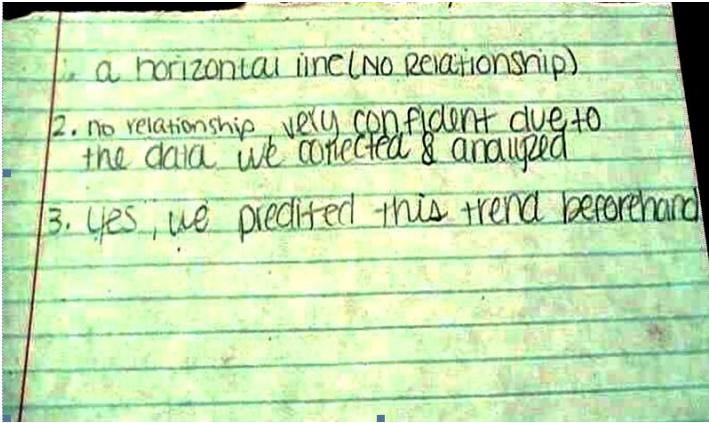 1. a horizontal line (No Relationship)
2. no relationship, very confident due to
the data we collected & analyzed
3. yes, we predited this trend beforehand